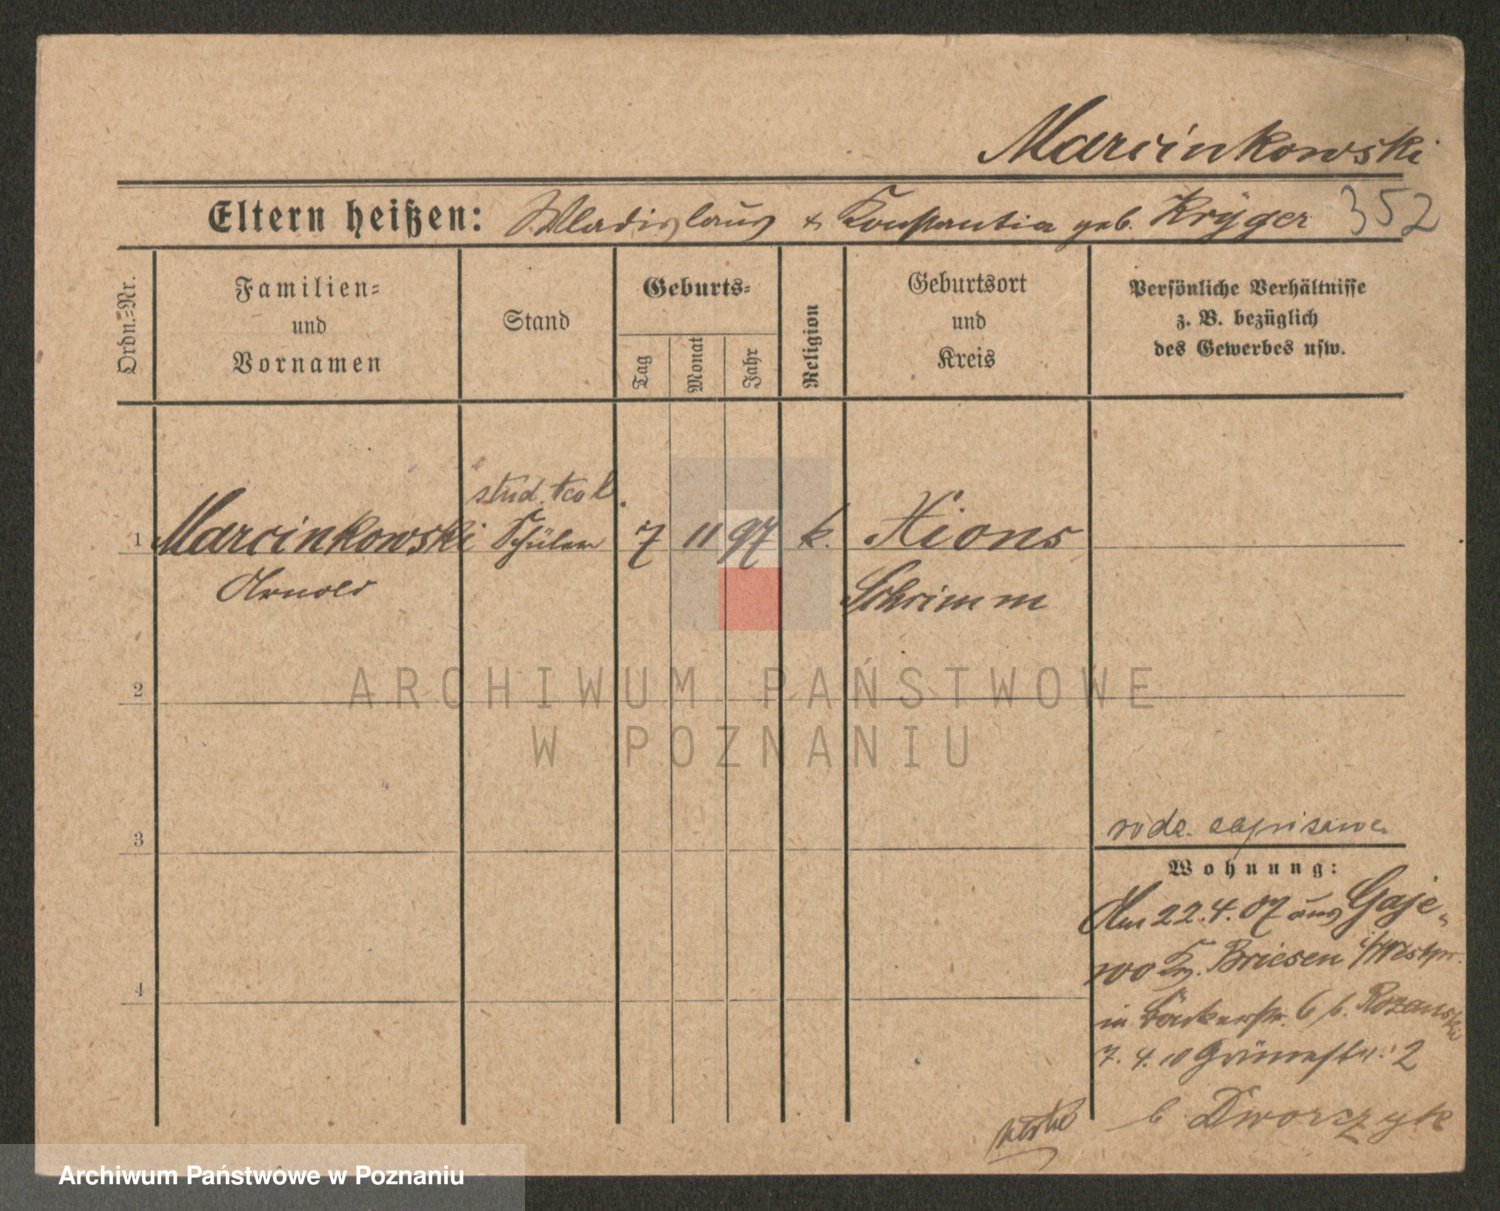 Marcinkowski
Eltern heißen: Wladislaus + Konstantia geb. Krÿger 352
Ordn.=Nr.
Familien=
und
Vornamen
Stand
Geburts=
Tag
Monat
Jahr
Religion
Geburtsort
und
Kreis
Persönliche Verhältnisse
z. B. bezüglich
des Gewerbes usw.
stud.
1 Marcinkowski Schüler 7 11 97 k. Xions
Arnold Schrimm
ARCHIWUM PAŃSTWOWE
W POZNANIU
2
3
4
rodz. zapisane
Wohnung:
Am 22.4.07 aus Gaje-
wo Kr. Briesen i/Westpr.
in Bäckerstr. 6 b. Rozanski
7.4.10 Grünestr. 2
b Dworczyk
Archiwum Państwowe w Poznaniu